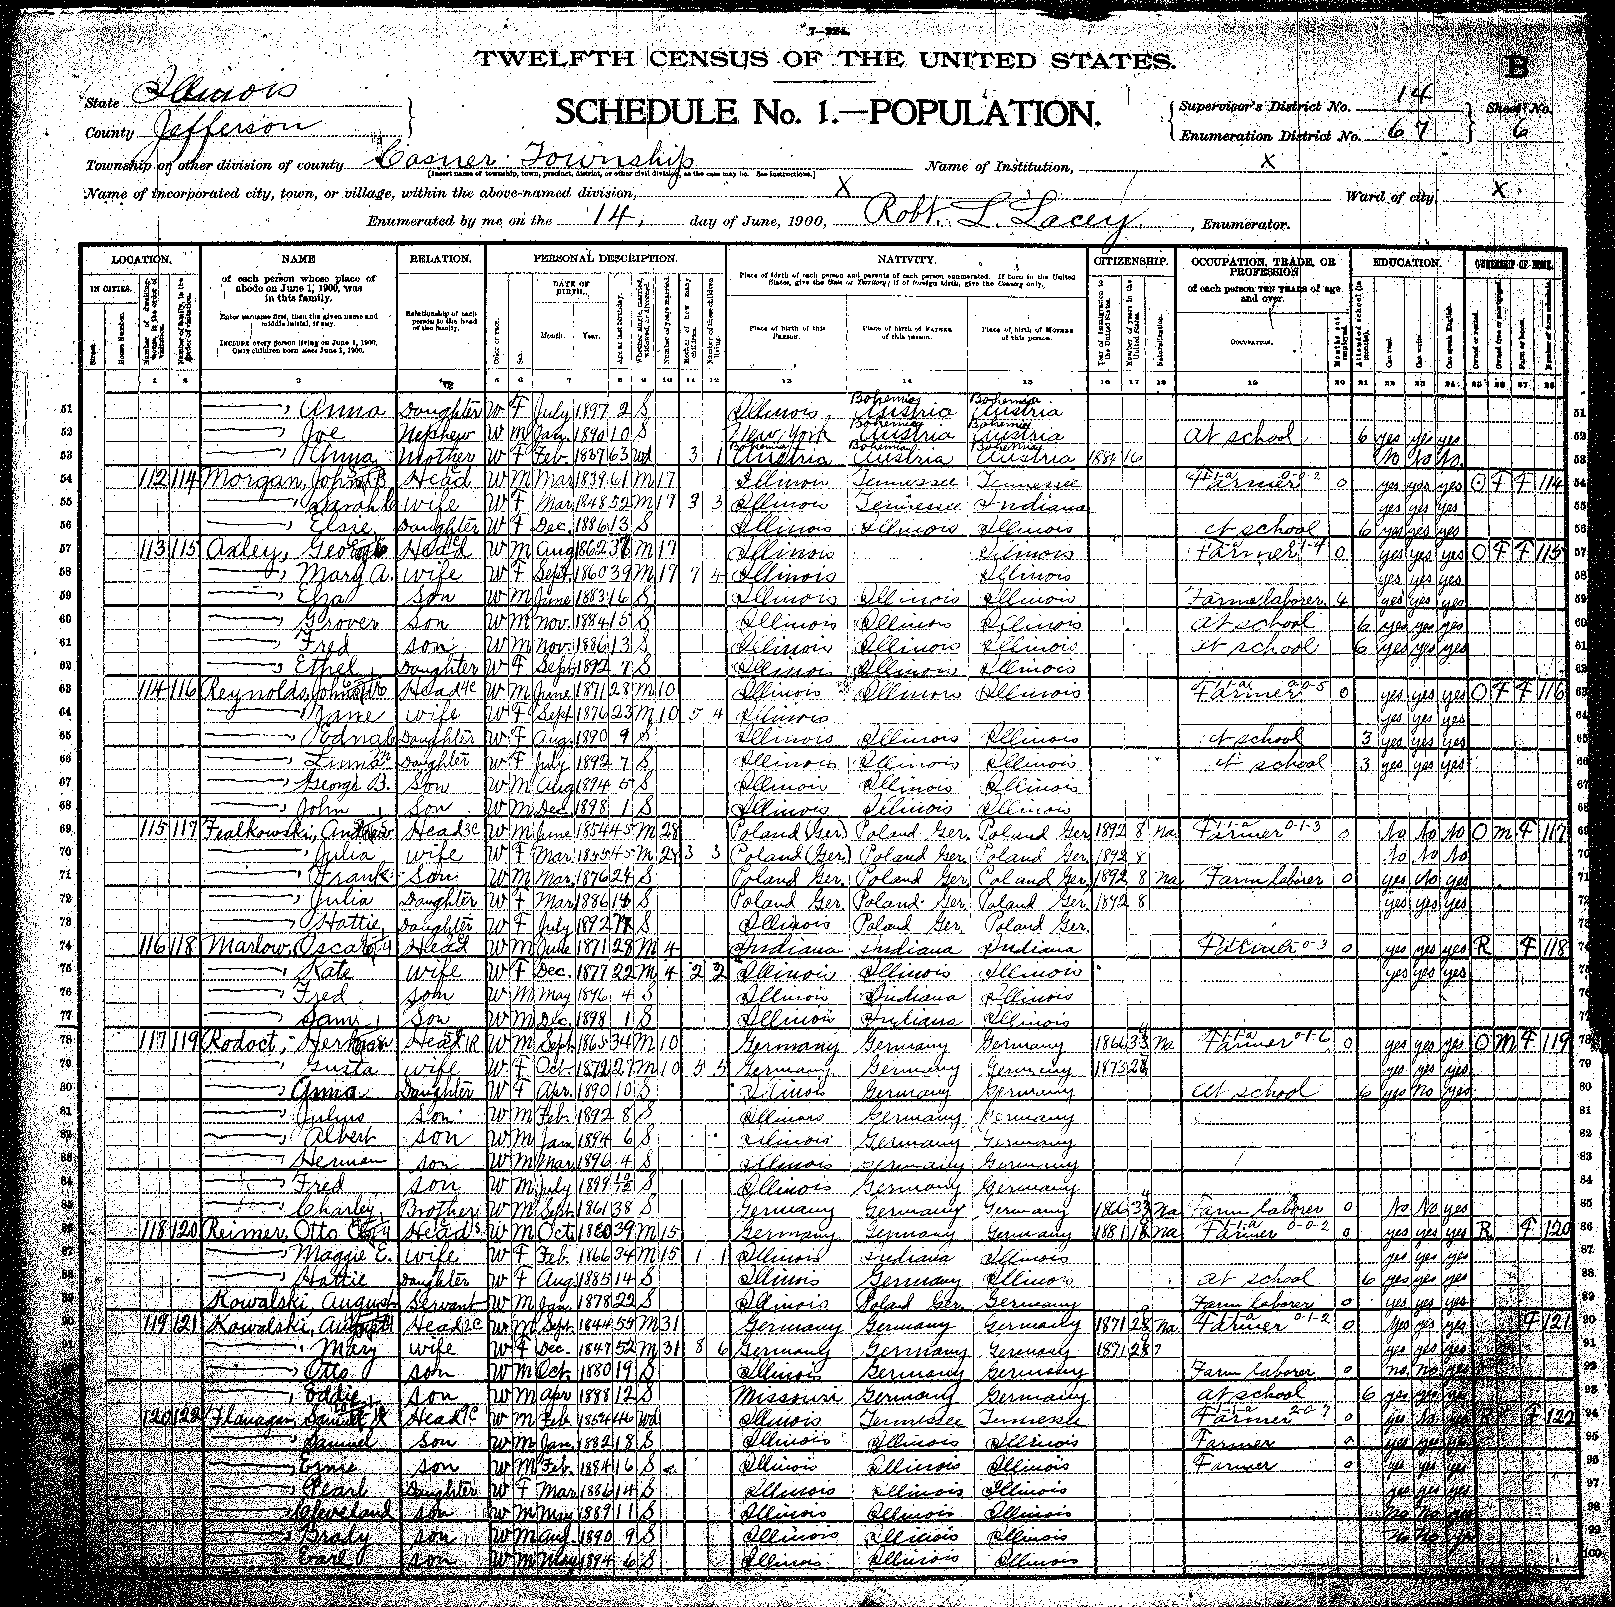 7—224.
TWELFTH CENSUS OF THE UNITED STATES.
B
State Illinois
County Jefferson
SCHEDULE No. 1.—POPULATION.
Supervisor's District No. 14
Enumeration District No. 67
Sheet No. 6
Township or other division of county Casner Township
Name of Institution, X
Name of incorporated city, town, or village, within the above-named division, X
Ward of city, X
Enumerated by me on the 14, day of June, 1900, Robt. L. Lacey, Enumerator.
LOCATION. NAME RELATION. PERSONAL DESCRIPTION. NATIVITY. CITIZENSHIP. OCCUPATION, TRADE, OR PROFESSION EDUCATION. OWNERSHIP OF HOME.
IN CITIES. of each person whose place of abode on June 1, 1900, was in this family. Relationship of each person to the head of the family. DATE OF BIRTH. of each person TEN YEARS of age and over.
Enter surname first, then the given name and middle initial, if any.
INCLUDE every person living on June 1, 1900. OMIT children born since June 1, 1900.
Month. Year. Place of birth of this Person. Place of birth of FATHER of this person. Place of birth of MOTHER of this person. OCCUPATION.
51 Anna Daughter W F July 1897 2 S Illinois Bohemia Austria Bohemia Austria
52 Joe Nephew W M Jan. 1890 10 S New York Bohemia Austria Bohemia Austria at school 6 yes yes yes
53 Anna Mother W F Feb. 63 Wd 3 1 Bohemia Austria Bohemia Austria Bohemia Austria 1884 16 No No No
54 112 114 Morgan, John B Head W M Mar 1839 61 M 17 Illinois Tennessee Tennessee Farmer 0 yes yes yes O F F 114
55 Sarah wife W F Mar 1848 52 M 17 3 3 Illinois Tennessee Indiana yes yes yes
56 Elsie Daughter W F Dec. 1886 13 S Illinois Illinois Illinois at school 6 yes yes yes
57 113 115 Axley, George Head W M Aug 1862 M 17 Illinois Illinois Farmer 0 yes yes yes O F F 115
58 Mary A. wife W F Sept 1860 39 M 17 7 4 Illinois Illinois yes yes yes
59 Ezra son W M June 1883 16 S Illinois Illinois Illinois Farm laborer 4 yes yes yes
60 Grover son W M Nov. 1884 15 S Illinois Illinois Illinois at school 6 yes yes yes
61 Fred son W M Nov. 1886 13 S Illinois Illinois Illinois at school 6 yes yes yes
62 Ethel Daughter W F Sept 1892 7 S Illinois Illinois Illinois
63 114 116 Reynolds, John Head W M June 1871 28 M 10 Illinois Illinois Illinois Farmer 0 yes yes yes O F F 116
64 Jane wife W F Sept 1876 23 M 10 5 4 Illinois yes yes yes
65 Edna Daughter W F Aug. 1890 9 S Illinois Illinois Illinois at school 3 yes yes yes
66 Daughter W F July 1892 7 S Illinois Illinois Illinois at school 3 yes yes yes
67 George B. Son W M Aug 1894 5 S Illinois Illinois Illinois
68 John Son W M Dec 1898 1 S Illinois Illinois Illinois
69 115 117 Fealkowski, Andrew Head W M June 1854 45 M 28 Poland (Ger) Poland Ger. Poland Ger 1892 8 Na Farmer 0 No No No O M F 117
70 Julia wife W F Mar 1855 45 M 28 3 3 Poland (Ger) Poland Ger. Poland Ger. 1892 8 No No No
71 Frank Son W M Mar. 1876 24 S Poland Ger. Poland Ger. Poland Ger. 1892 8 Na Farm laborer 0 yes No yes
72 Julia Daughter W F Mar 1886 14 S Poland Ger. Poland Ger. Poland Ger. 1892 8 yes yes yes
73 Hattie Daughter W F July 1892 7 S Illinois Poland Ger. Poland Ger.
74 116 118 Marlow, Oscar Head W M June 1871 28 M 4 Indiana Indiana Indiana Farmer 0 yes yes yes R F 118
75 Kate wife W F Dec. 1877 22 M 4 2 2 Illinois Illinois Illinois yes yes yes
76 Fred son W M May 1896 4 S Illinois Indiana Illinois
77 Sam Son W M Dec. 1898 1 S Illinois Indiana Illinois
78 117 119 Rodoct, Herman Head W M Sept 1865 34 M 10 Germany Germany Germany 1866 33 Na Farmer 0 yes yes yes O M F 119
79 Gusta wife W F Oct 1872 27 M 10 5 5 Germany Germany Germany 1873 yes yes yes
80 Anna Daughter W F Apr. 1890 10 S Illinois Germany Germany at school 6 yes No yes
81 Julius Son W M Feb. 1892 8 S Illinois Germany Germany
82 Albert son W M Jan 1894 6 S Illinois Germany Germany
83 Herman son W M Mar 1896 4 S Illinois Germany Germany
84 Fred son W M July 1899 S Illinois Germany Germany
85 Charley Brother W M Sept. 1861 38 S Germany Germany Germany 1866 33 Na Farm laborer 0 No No yes
86 118 120 Reimer, Otto Head W M Oct 1860 39 M 15 Germany Germany Germany 1881 18 Na Farmer 0 yes yes yes R F 120
87 Maggie E. wife W F Feb. 1866 34 M 15 1 1 Illinois Indiana Illinois yes yes yes
88 Hattie Daughter W F Aug 1885 14 S Illinois Germany Illinois at school 6 yes yes yes
89 Kowalski, August Servant W M Jan. 1878 22 S Illinois Poland Ger. Germany Farm laborer 0 yes yes yes
90 119 121 Kowalski, August Head W M Sept 1844 55 M 31 Germany Germany Germany 1871 28 Na Farmer 0 yes yes yes F 121
91 Mary wife W F Dec. 1847 52 M 31 8 6 Germany Germany Germany 1871 28 yes yes yes
92 Otto son W M Oct. 1880 19 S Illinois Germany Germany Farm laborer 0 no no yes
93 Eddie son W M Apr 1888 12 S Missouri Germany Germany at school 6 yes yes yes
94 120 122 Flanagan, Samuel Head W M Feb Wd Illinois Tennessee Tennessee Farmer 0 yes No yes R F 122
95 Samuel son W M Jan. 1882 18 S Illinois Illinois Illinois Farmer 0 yes yes yes
96 Ernie son W M Feb. 1884 16 S Illinois Illinois Illinois Farmer 0 yes yes yes
97 Pearl Daughter W F Mar 1886 14 S Illinois Illinois Illinois yes yes yes
98 Cleveland son W M May 1889 11 S Illinois Illinois Illinois No No yes
99 Brady son W M Aug. 1890 9 S Illinois Illinois Illinois
100 Earl son W M May 1894 6 S Illinois Illinois Illinois